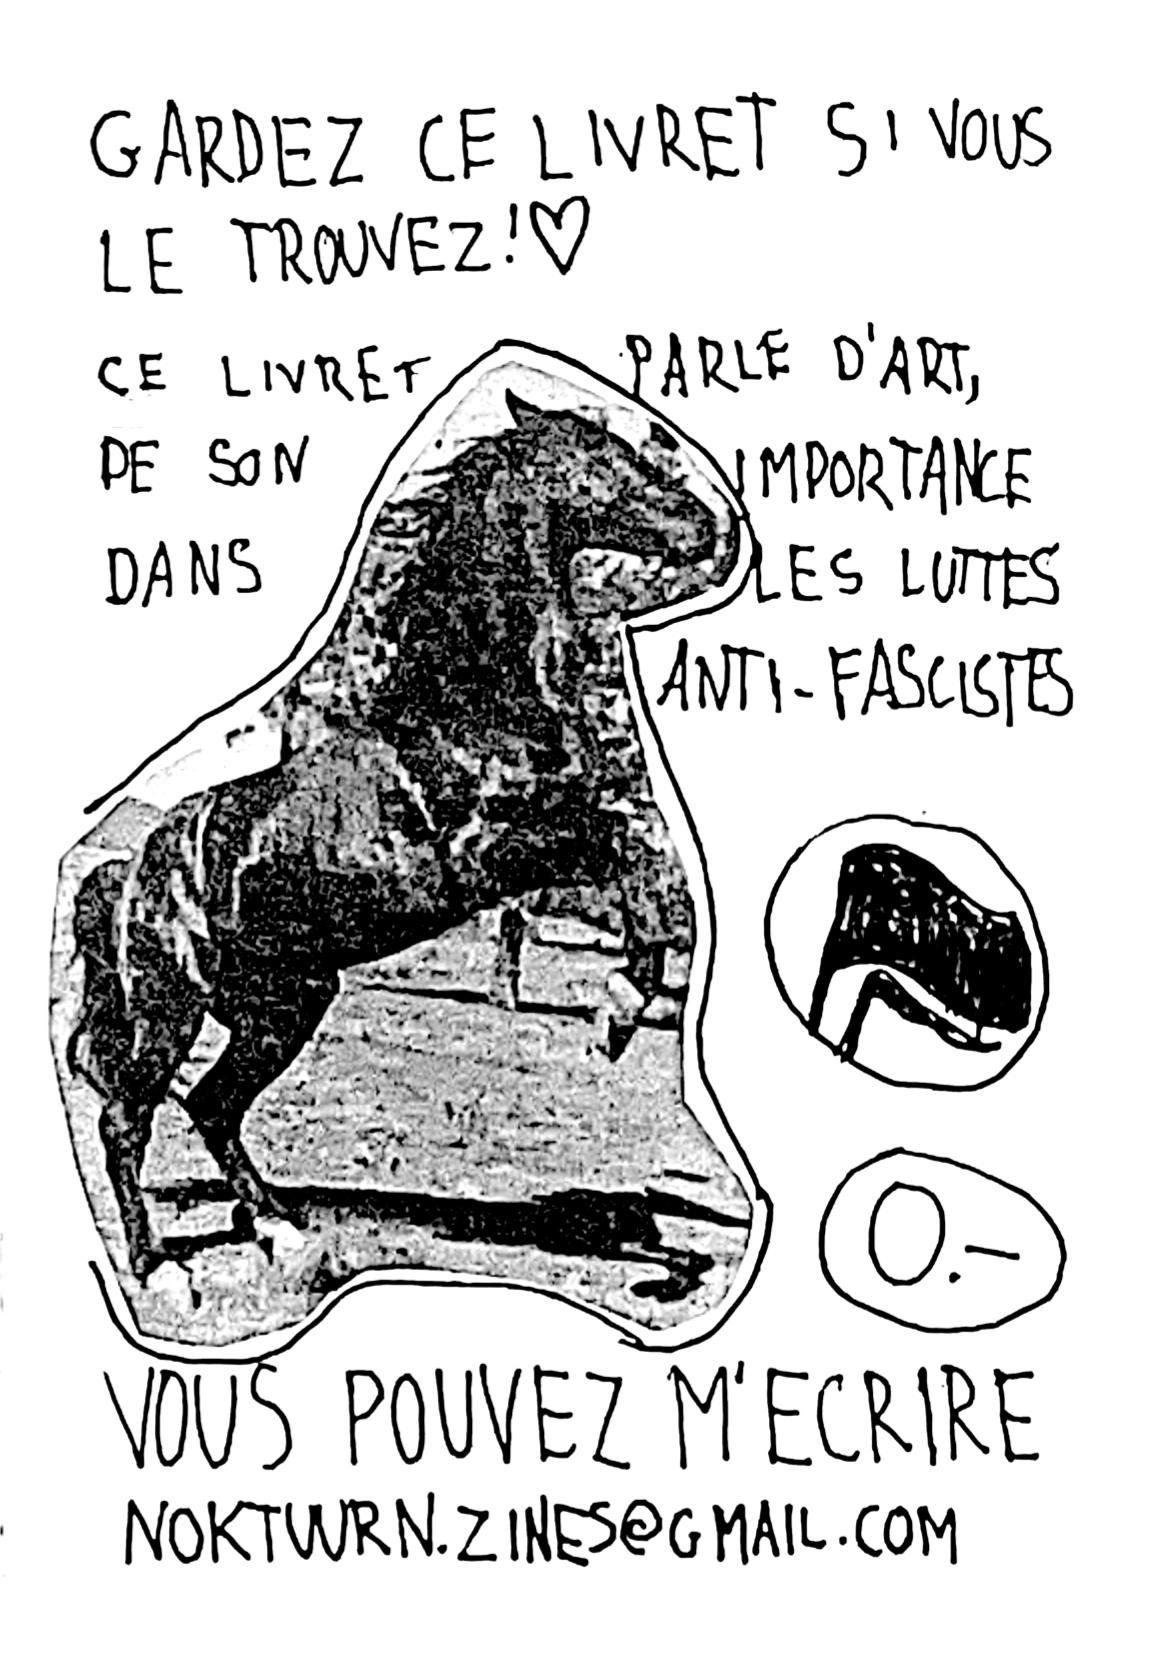 GARDEZ CE LIVRET SI VOUS
LE TROUVEZ!♡
CE LIVRET PARLE D'ART,
DE SON IMPORTANCE
DANS LES LUTTES
ANTI-FASCISTES
0.-
VOUS POUVEZ M'ECRIRE
NOKTUURN.ZINES@GMAIL.COM